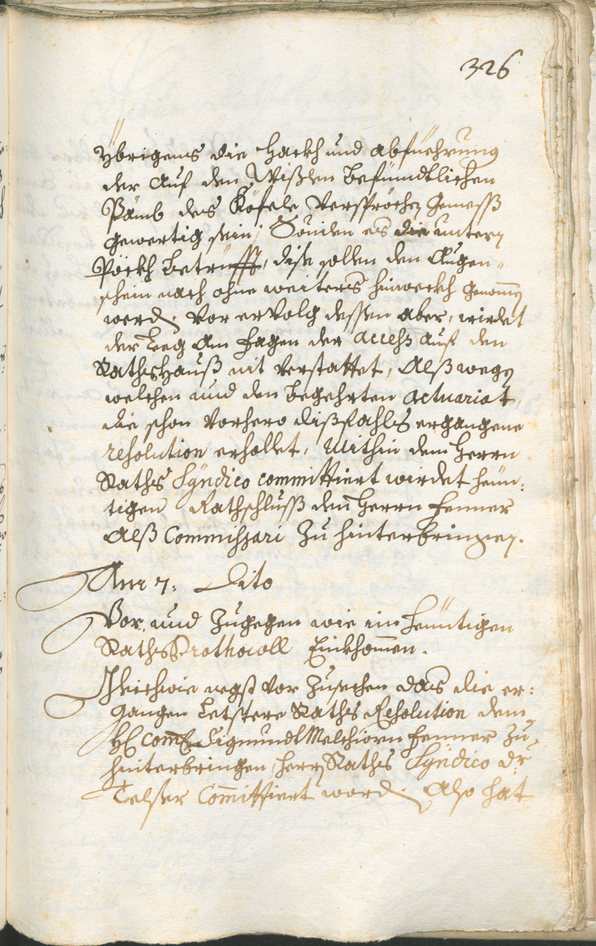 326
Ybrigens die hackh und abfüehrung
der auf den Wißen befündtlichen
Pämb des Kofele versprochen gemeß
gewertig sein, Souiln es die untern
Pöckh betrüfft, dise sollen den augen=
schein nach ohne weiters hinweckh genommen
werd. Vor ervolg dessen aber, wirdet
der Zeeg am fagen der access auf den
Rathshauß nit verstattet, Alß wegen
welchen und den begehrten actuariat,
die schon vorhero dißfahls ergangene
resolution erhollet, Mithin dem Herrn
Raths Syndico committiert wirdet heün=
tigen Rathschluß dem Herrn Fenner
Alß Commissari zu hinterbringen.
Am 7. Dito
Vor und zugegen wie im heüntigen
Raths Prothocoll Einkhommen.
Gleichwie negst vorzusechen das die er=
gangen letstere Raths Resolution dem
H Com Sigmundt Melchiorn Fenner zu
hinterbringen Herrn Raths Syndico Dr
Telser Committiert word. Also hat